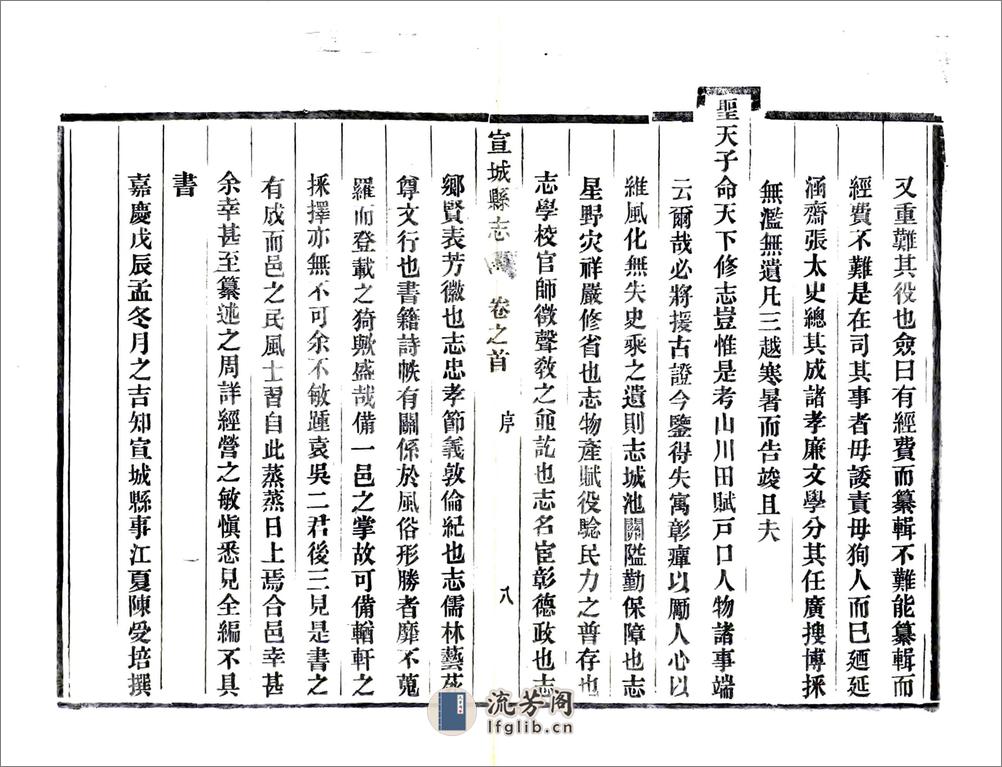 又重難其役也僉曰有經費而纂輯不難能纂輯而
經費不難是在司其事者毋諉責毋狥人而巳廼延
涵齋張太史總其成諸孝廉文學分其任廣搜博採
無濫無遺凡三越寒暑而告竣且夫
聖天子命天下修志豈惟是考山川田賦戸口人物諸事端
云爾哉必將援古證今鑒得失寓彰癉以勵人心以
維風化無失史乘之遺則志城池關隘勤保障也志
星野灾祥嚴修省也志物產賦役騐民力之普存也
志學校官師徵聲敎之並訖也志名宦彰德政也志
宣城縣志 卷之首 序 八
鄉賢表芳徽也志忠孝節義敦倫紀也志儒林藝苑
尊文行也書籍詩帙有關係於風俗形勝者靡不蒐
羅而登載之猗歟盛哉備一邑之掌故可備輶軒之
採擇亦無不可余不敏踵袁吳二君後三見是書之
有成而邑之民風士習自此蒸蒸日上焉合邑幸甚
余幸甚至纂述之周詳經營之敏愼悉見全編不具
書
嘉慶戊辰孟冬月之吉知宣城縣事江夏陳受培撰
流芳阁
lfglib.cn